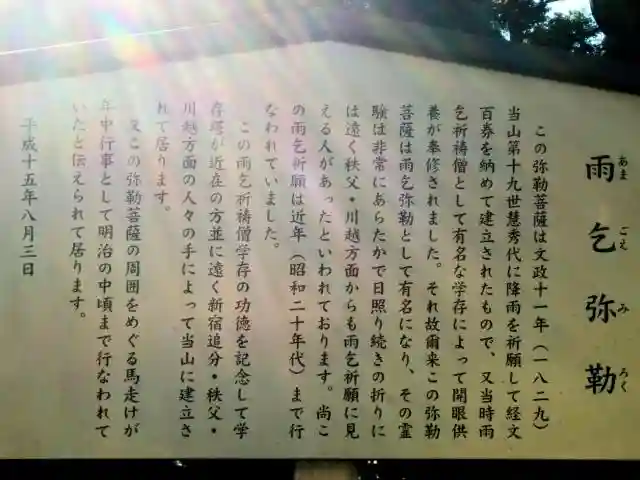 雨乞弥勒
あまごえみろく
この弥勒菩薩は文政十一年(一八二九)
当山第十九世慧秀代に降雨を祈願して経文
百券を納めて建立されたもので、又当時雨
乞祈禱僧として有名な学存によって開眼供
養が奉修されました。それ故爾来この弥勒
菩薩は雨乞弥勒として有名になり、その霊
験は非常にあらたかで日照り続きの折りに
は遠く秩父・川越方面からも雨乞祈願に見
える人があったといわれております。尚こ
の雨乞祈願は近年(昭和二十年代)まで行
なわれていました。
この雨乞祈禱僧学存の功徳を記念して学
存塔が近在の方並に遠く新宿追分・秩父・
川越方面の人々の手によって当山に建立さ
れて居ります。
又この弥勒菩薩の周囲をめぐる馬走けが
年中行事として明治の中頃まで行なわれて
いたと伝えられて居ります。
平成十五年八月三日